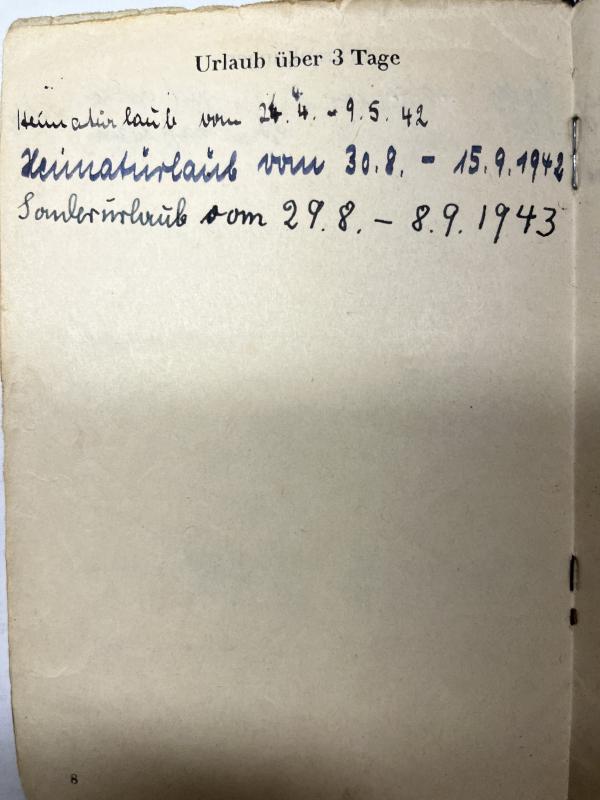 Urlaub über 3 Tage
Heimaturlaub vom 24.4. - 9.5. 42
Heimaturlaub vom 30.8. - 15.9.1942
Sonderurlaub vom 29.8. - 8.9. 1943
8